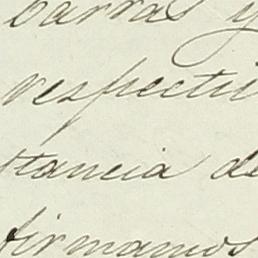 barras y
respecti
tancia de
firmamos